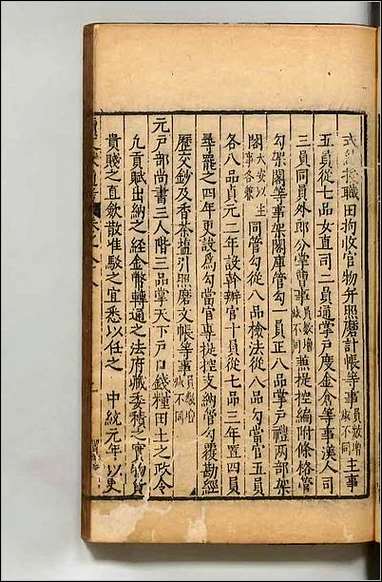 式給授職田拘收官物并照磨計帳等事員數增減不同主事
五員從七品女直司二員通掌戶度金倉等事漢人司
三員同員外郎分掌曹事員數增減不同兼提控編附條格管
勾架閣等事架閣庫管勾一員正八品掌戶禮兩部架
閣大安以主事各兼同管勾從八品檢法從八品勾當官五員
各八品貞元二年設幹辦官十員從七品三年置四員
尋罷之四年更設為勾當官專提控支納管勾覆勘經
歷交鈔及香茶鹽引照磨文帳等事員數增減不同
元戶部尚書三人階三品掌天下戶口錢糧田土之政令
九貢賦出納之經金幣轉通之法府藏委積之實物貨
貴賤之直斂散准駁之宜悉以任之 中統元年以吏